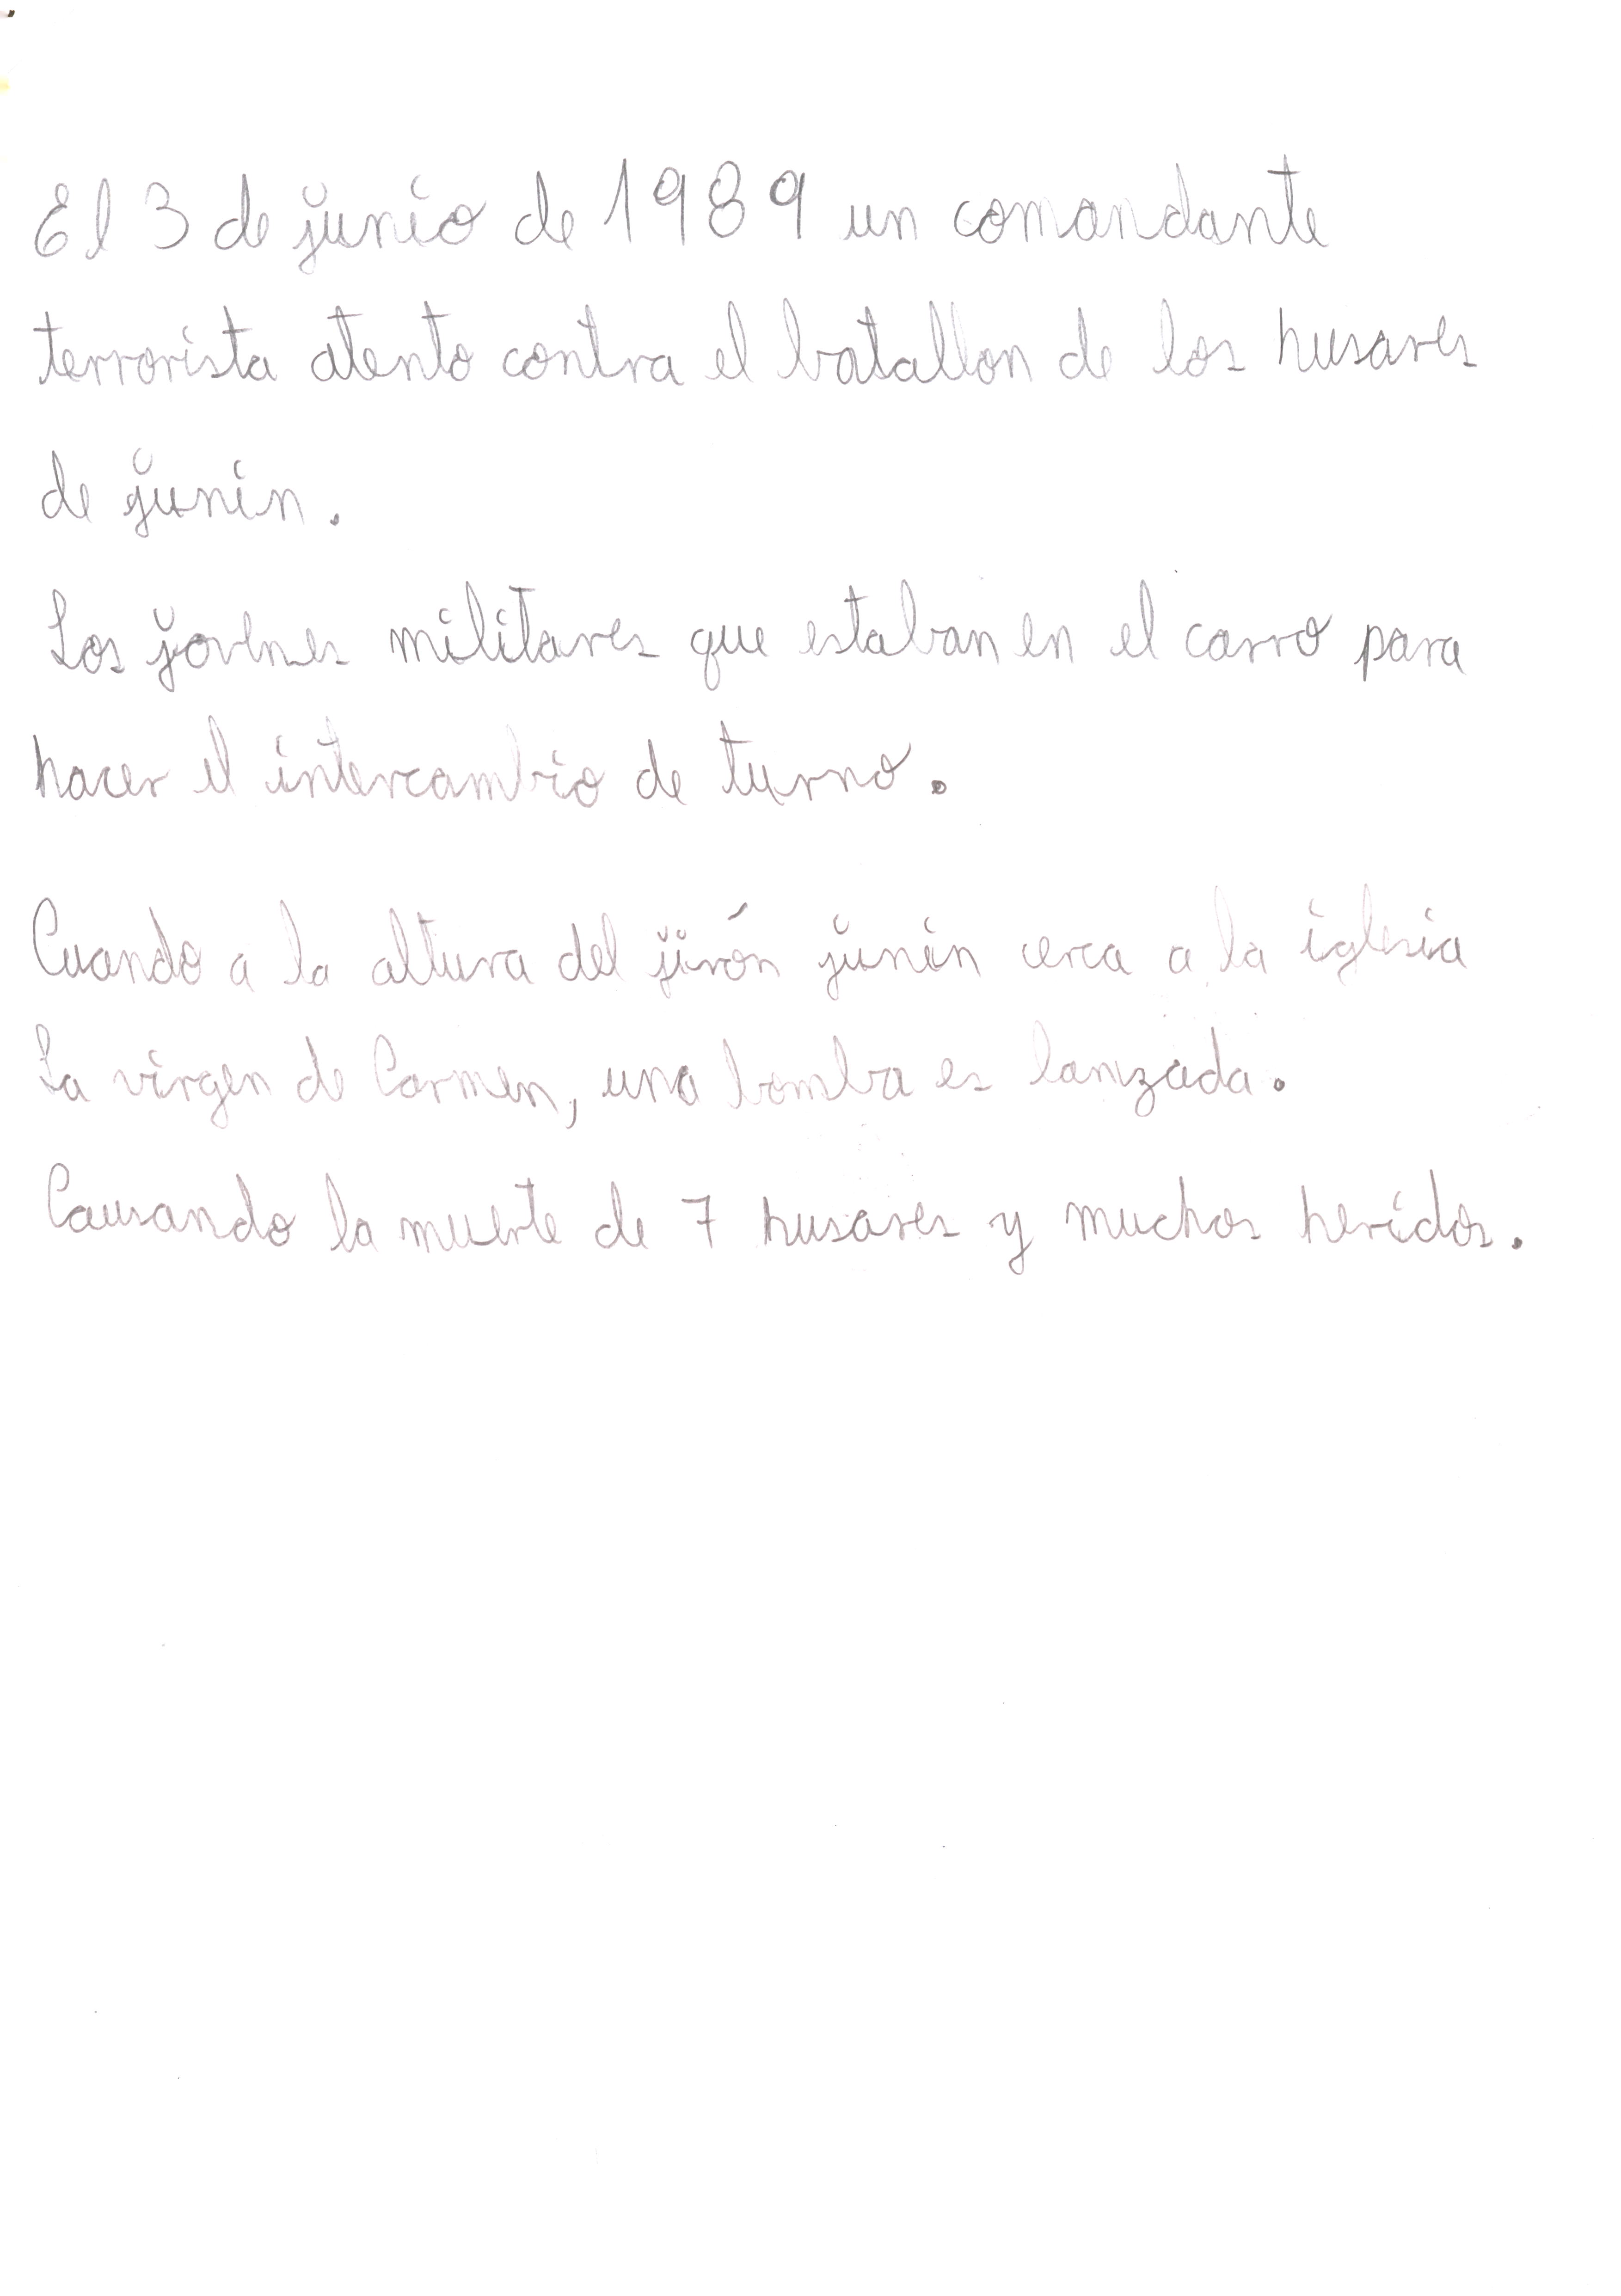 El 3 de junio de 1989 un comandante
terrorista atento contra el batallon de los husares
de junin.
Los jovenes militares que estaban en el carro para
hacer el intercambio de turno.
Cuando a la altura del jirón junin cerca a la iglesia
La virgen de Carmen, una bomba es lanzada.
Causando la muerte de 7 husares y muchos heridos.